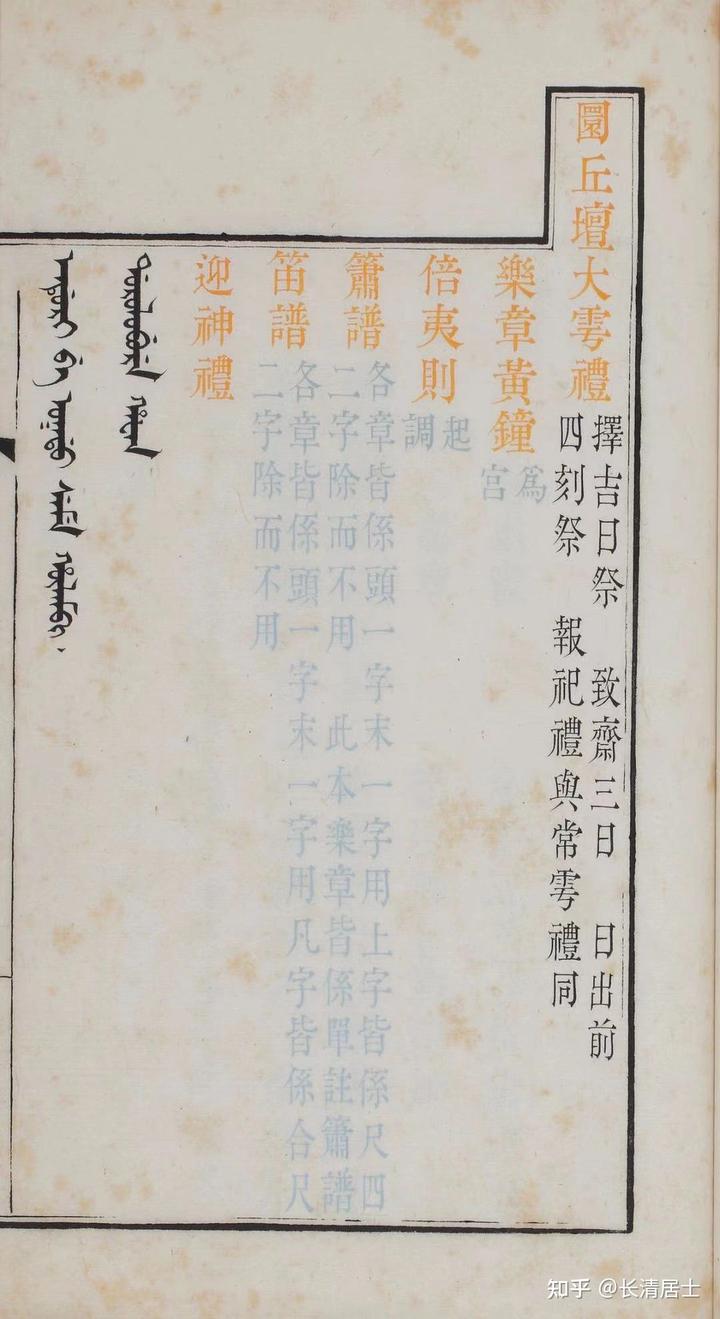 圜丘壇大雩禮
擇吉日祭 致齋三日 日出前
四刻祭 報祀禮與常雩禮同
樂章黃鐘
為
宮
倍夷則
起
調
簫譜
各章皆係頭一字末一字用上字皆係尺四
二字除而不用 此本樂章皆係單註簫譜
笛譜
各章皆係頭一字末一字用凡字皆係合尺
二字除而不用
迎神禮
知乎 @长清居士